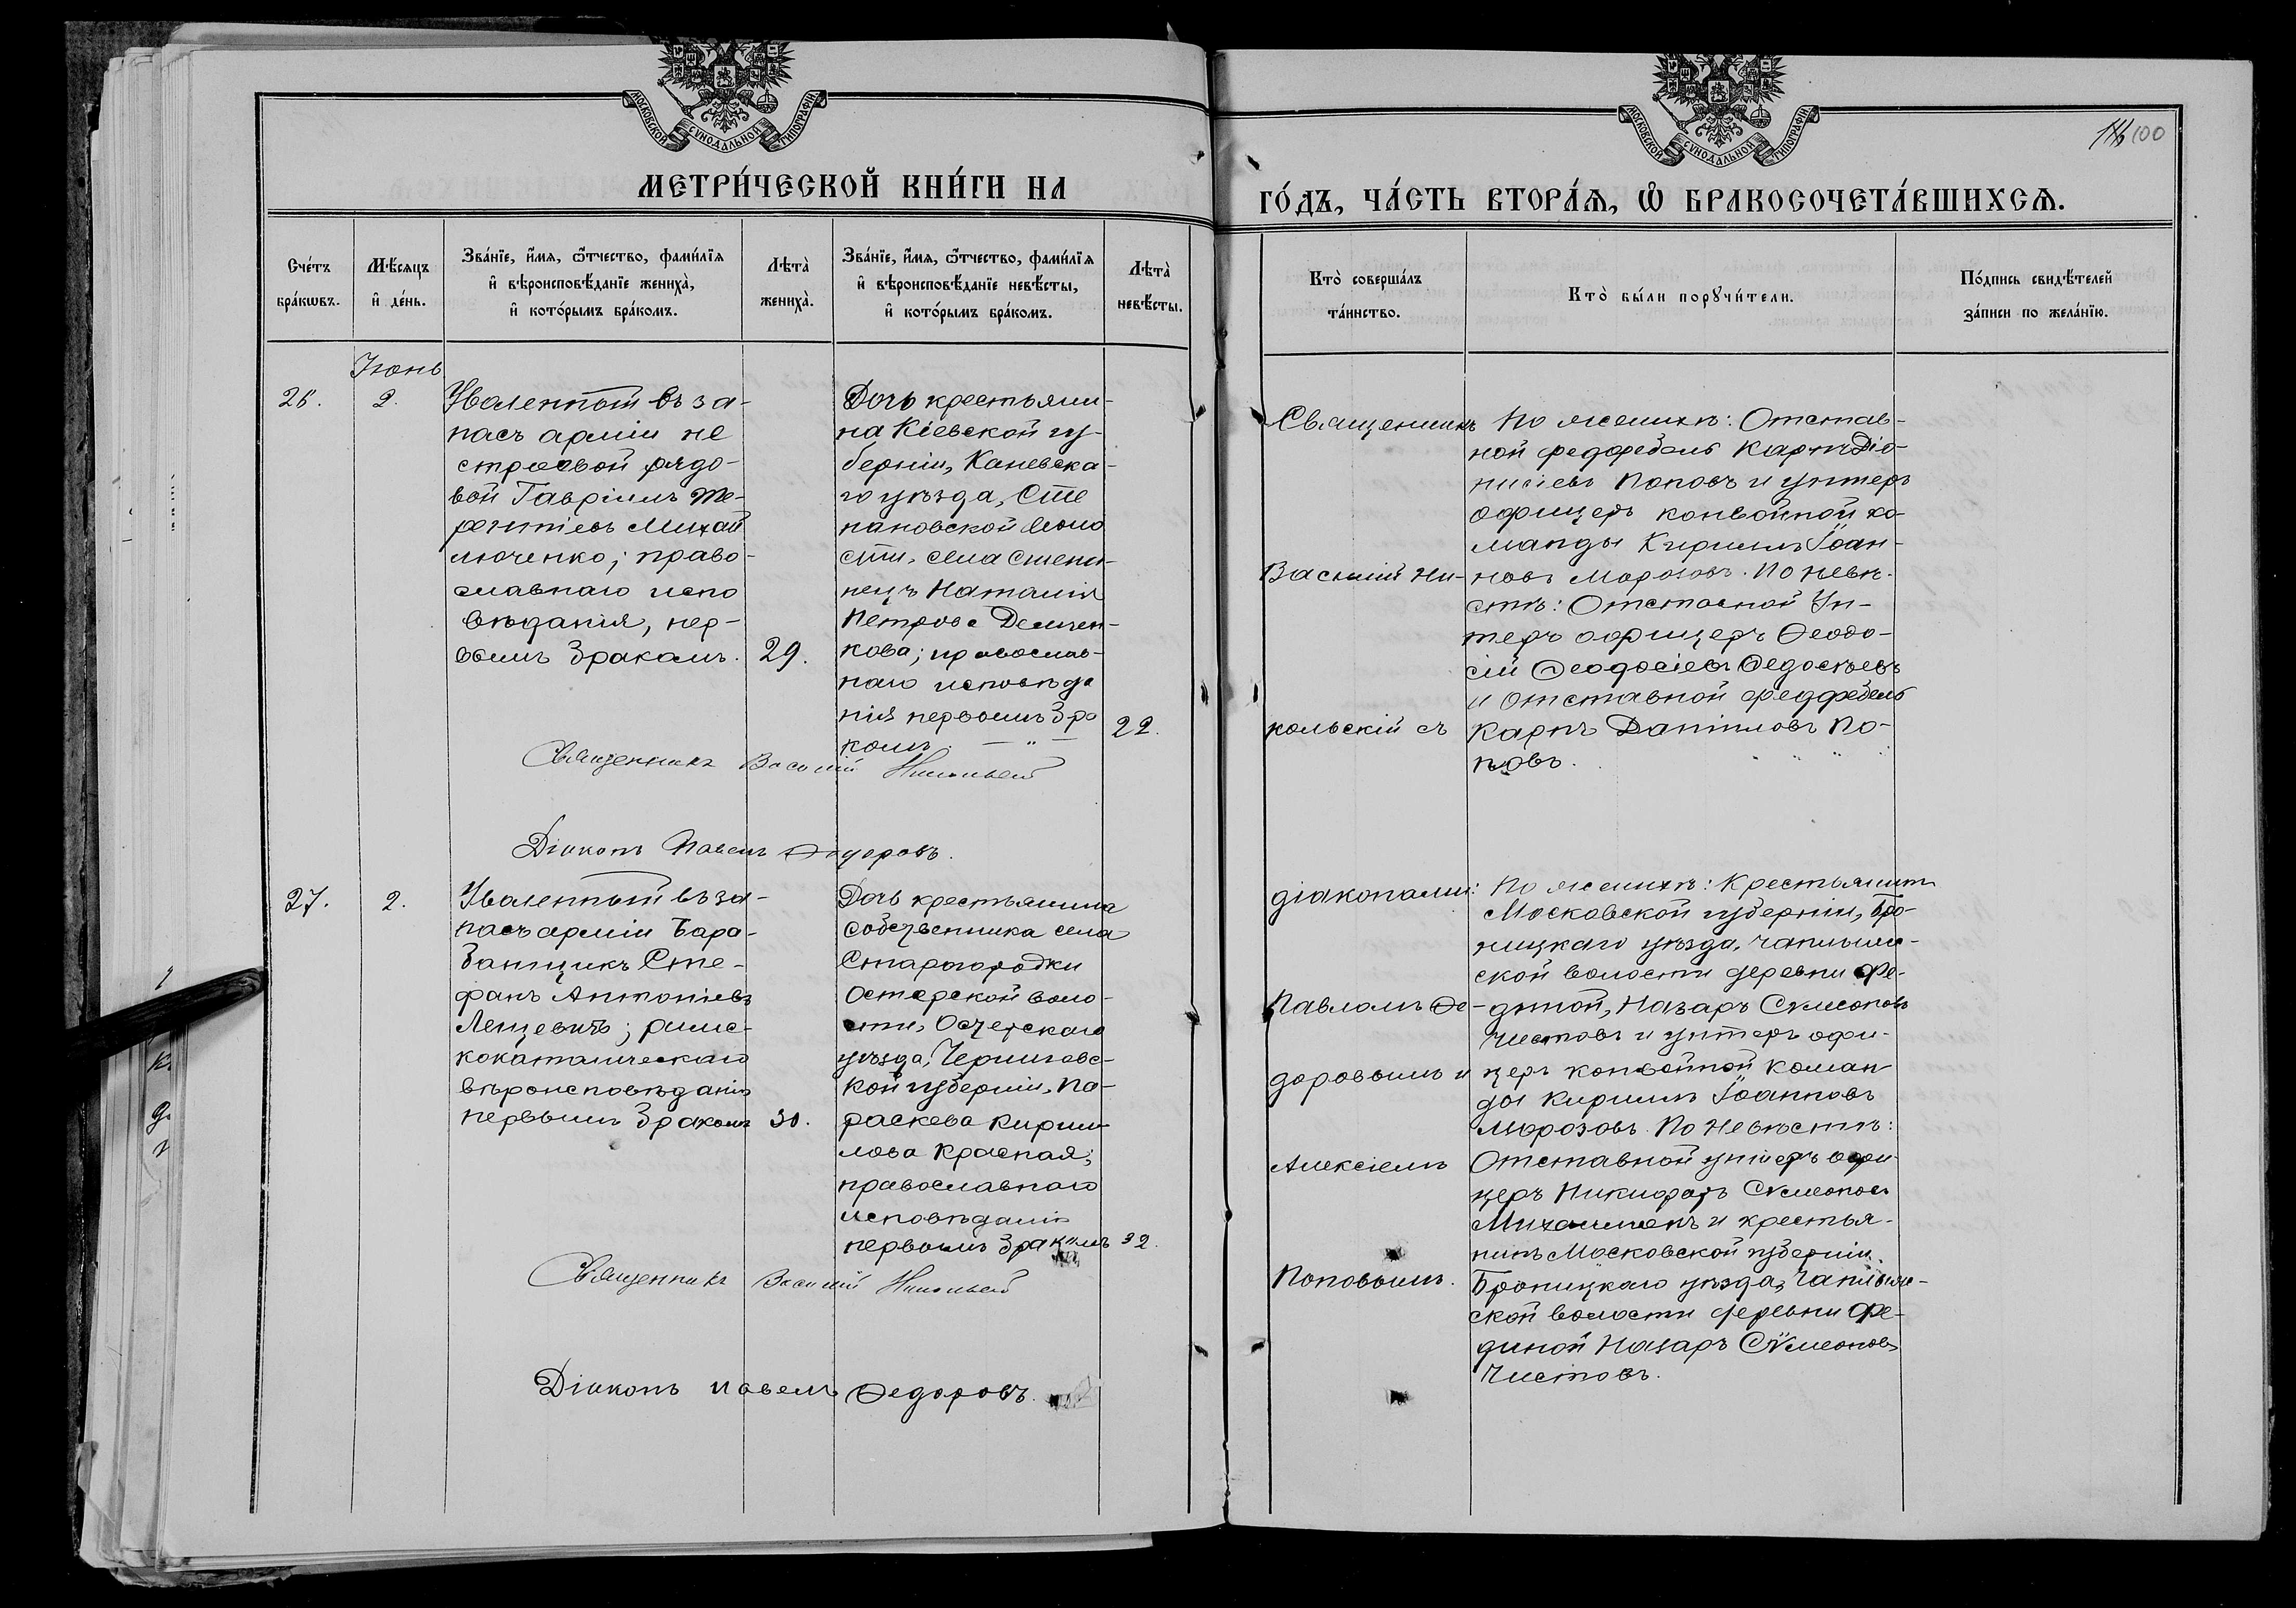 МОСКОВСКОЙ СУНОДАЛЬНОЙ ТИПОГРАФІИ
МЕТРИ́ЧЕСКОЙ КНИ́ГИ НА
Сче́тъ бра́кѡвъ.
Мѣ́сяцъ и҆ де́нь.
Зва́нїе, и҆́мѧ, ѻ҆́тчество, фами́лїѧ
и҆ вѣроисповѣ́данїе жениха̀,
и҆ кото́рымъ бра́комъ.
Лѣта̀ жениха̀.
Зва́нїе, и҆́мѧ, ѻ҆́тчество, фами́лїѧ
и҆ вѣроисповѣ́данїе невѣ́сты,
и҆ кото́рымъ бра́комъ.
Лѣта̀ невѣ́сты.
Іюнь
26.
2.
Уволенный въ за-
пасъ арміи не
строевой рядо-
вой Гавріилъ Те-
рентіевъ Михай
люченко; право-
славнаго испо
вѣданія, пер-
вымъ бракомъ.
29.
Дочь крестьяни-
на Кіевской гу-
берніи, Каневска-
го уѣзда, Сте
пановской воло
сти, села Степа-
нецъ Наталія
Петрова Демчен-
кова; православ-
наго исповѣда
нія первымъ бра
комъ. — " —
22.
Священникъ Василій Никольскій
Діаконъ Павелъ Ѳедоровъ.
27.
2.
Уволенный въ за-
пасъ арміи бара-
банщикъ Сте-
фанъ Антоніевъ
Ленцевичъ; римс-
кокатолическаго
вѣроисповѣданія
первымъ бракомъ
30.
Дочь крестьянина
собственника села
Старогородки
Остерской воло-
сти, Остерскаго
уѣзда, Черниговс-
кой губерніи, Па-
раскева Кирил-
лова Красная;
православнаго
исповѣданія
первымъ бракомъ
32.
Священникъ Василій Никольскій
Діаконъ Павелъ Ѳедоровъ.
МОСКОВСКОЙ СУНОДАЛЬНОЙ ТИПОГРАФІИ
100
ГО́ДЪ, ЧА́СТЬ ВТОРА́Ѧ, Ѡ҆ БРАКОСОЧЕТА́ВШИХСѦ.
Кто̀ соверша́лъ
та́инство.
Кто̀ бы́ли порꙋчи́тели.
По́дпись свидѣ́телей
за́писи по жела́нїю.
Священникъ
Василій Ни-
кольскій съ
діаконами:
Павломъ Ѳе-
доровымъ и
Алексіемъ
Поповымъ.
По женихѣ: Отстав-
ной федфебель Карпъ Діо-
нисіевъ Поповъ и унтеръ
офицеръ конвойной ко-
манды Кириллъ Іоан-
новъ Морозовъ. По невѣ-
стѣ: Отставной Ун-
теръ офицеръ Ѳеодо-
сій Ѳеодосіевъ Ѳедосѣевъ
и отставной федфебель
Карпъ Даніиловъ По-
повъ.
По женихѣ: Крестьянинъ
Московской губерніи, Бро-
ницкаго уѣзда,
ской волости деревни Фе-
диной, Назаръ Сѵмеоновъ
Чистовъ и унтеръ офи-
церъ конвойной коман
ды Кириллъ Іоанновъ
Морозовъ. По Невѣстѣ:
Отставной унтеръ офи-
церъ Никифоръ Сѵмеоновъ
и крестья-
нинъ Московской губерніи
Броницкаго уѣзда,
ской волости деревни Фе-
диной Назаръ Сѵмеоновъ
Чистовъ.